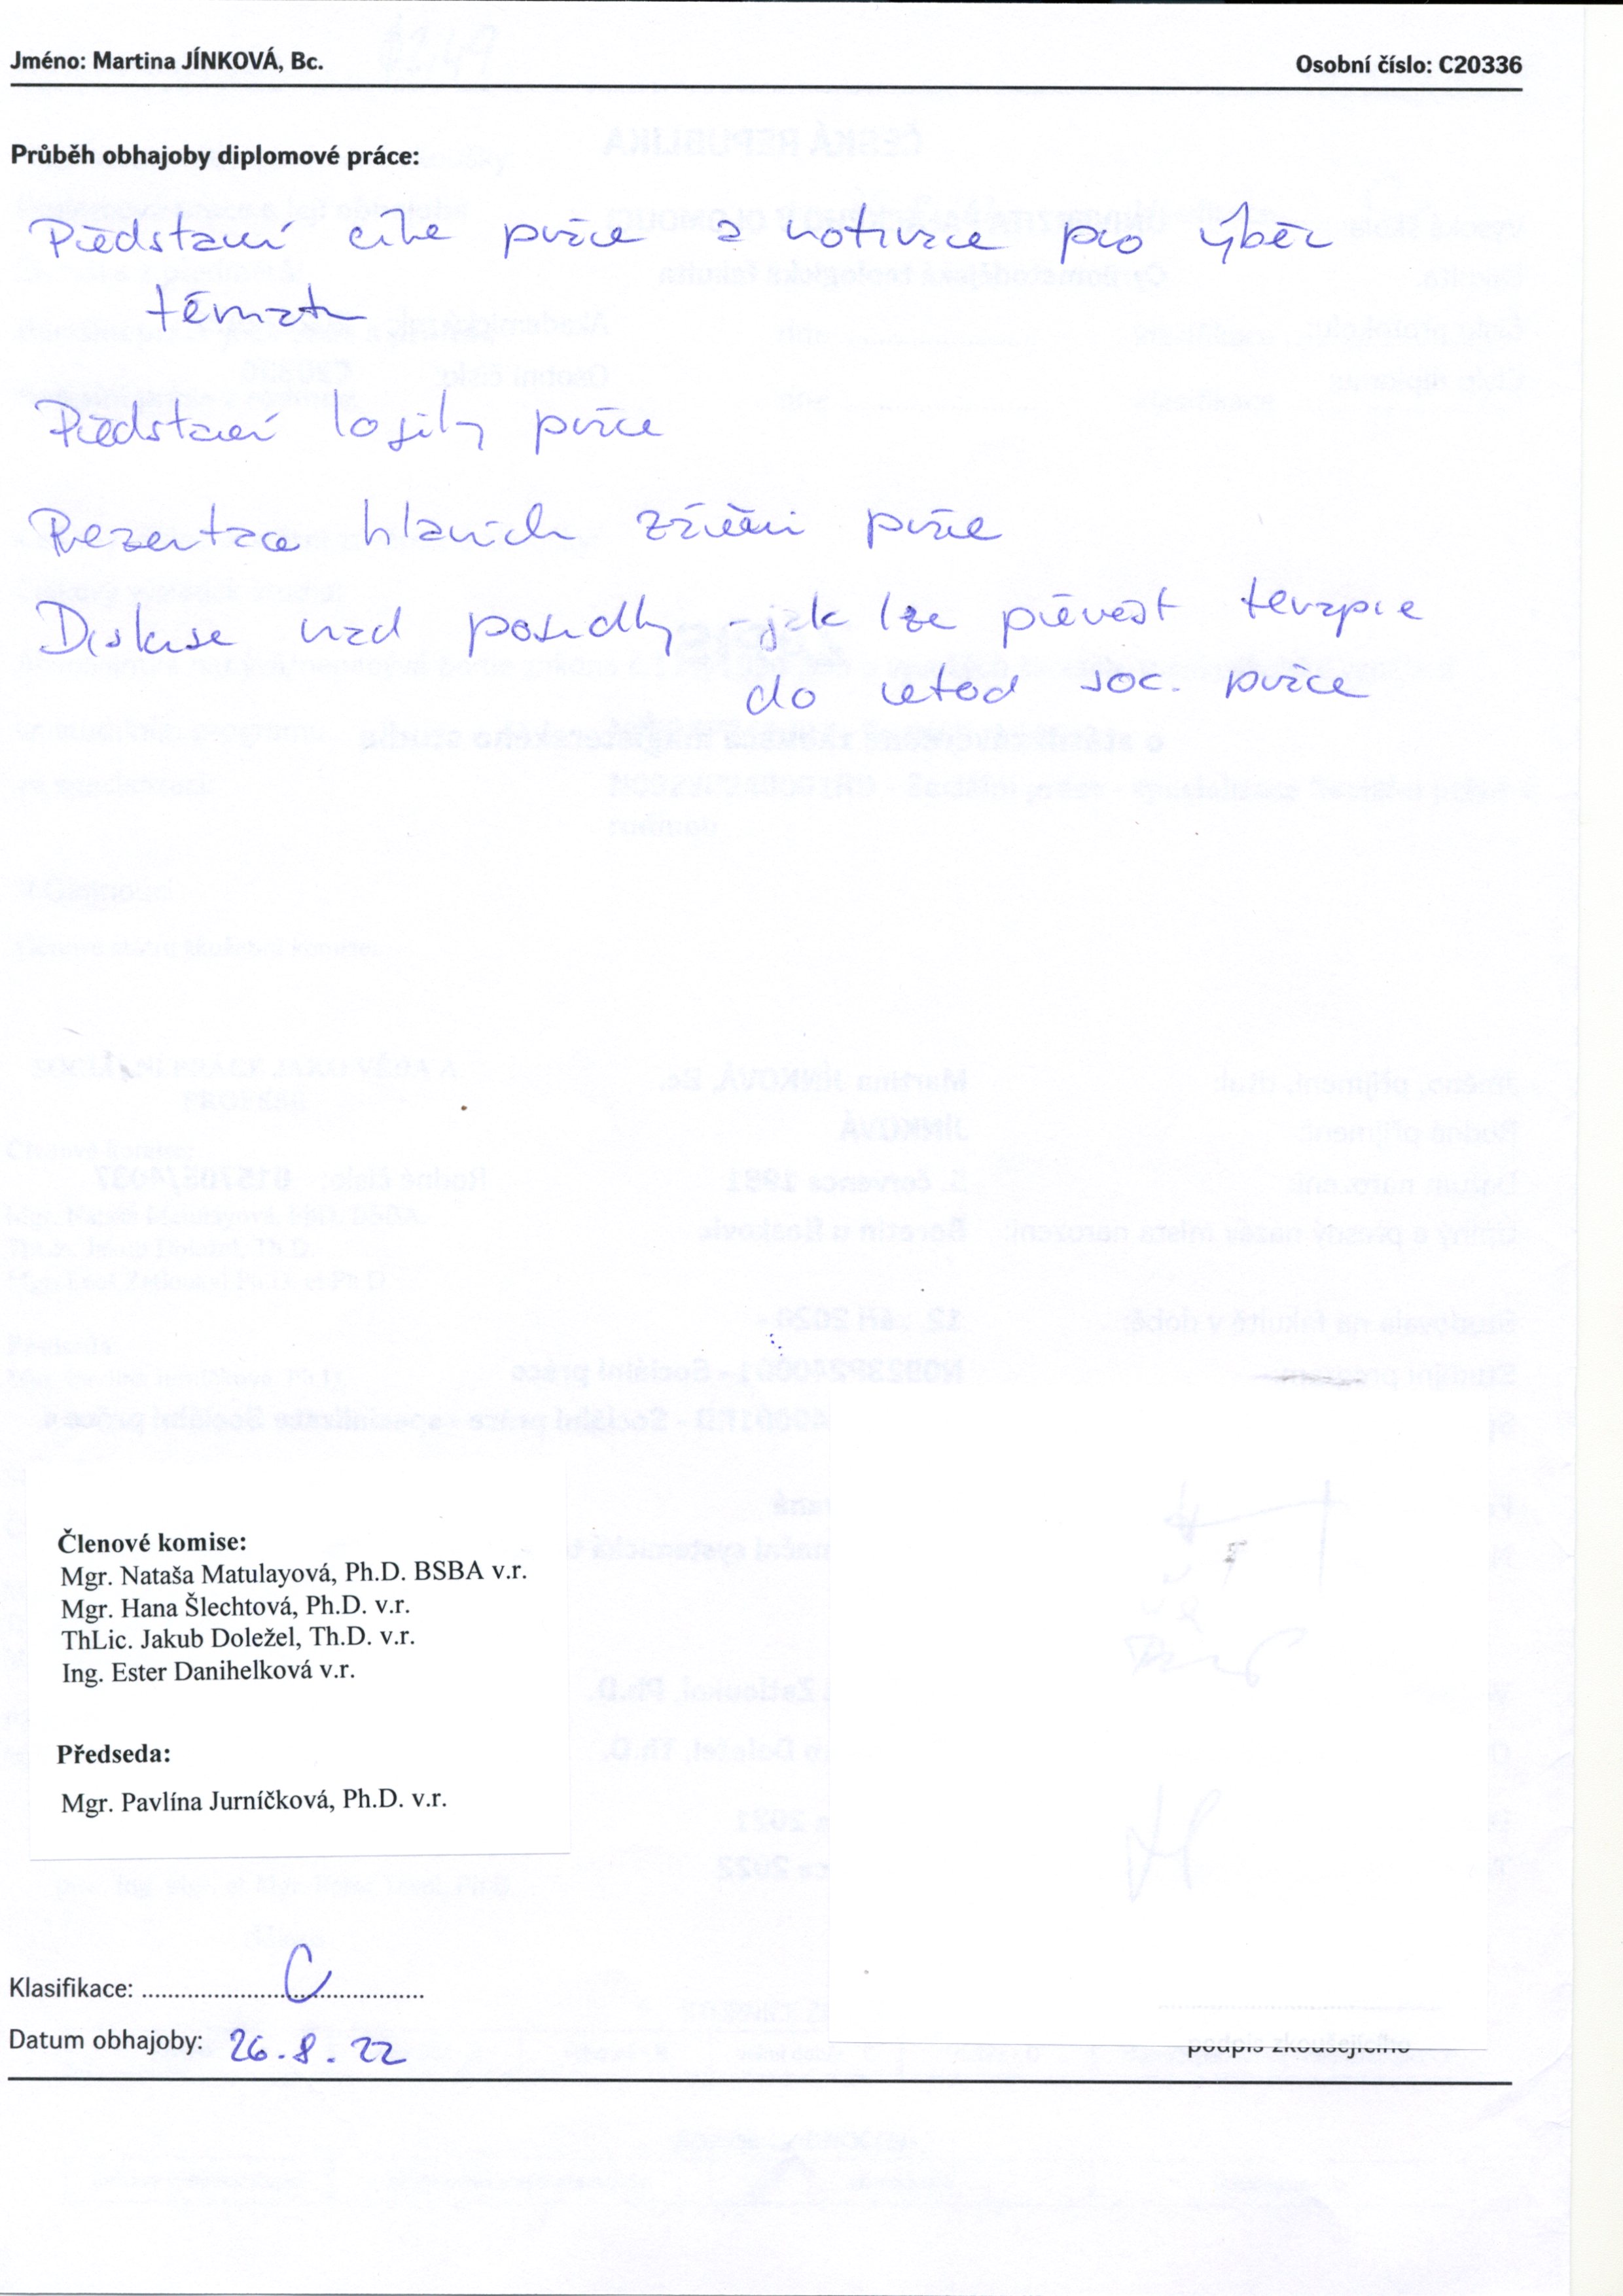 Jméno: Martina JÍNKOVÁ, Bc. Osobní číslo: C20336
Průběh obhajoby diplomové práce:
Představení cíle práce a motivace pro výběr
tématu
Představení logiky práce
Prezentace hlavních závěrů práce
Diskuse nad posudky - jak lze převést terapie
do metod soc. práce
Členové komise:
Mgr. Nataša Matulayová, Ph.D. BSBA v.r.
Mgr. Hana Šlechtová, Ph.D. v.r.
ThLic. Jakub Doležel, Th.D. v.r.
Ing. Ester Danihelková v.r.
Předseda:
Mgr. Pavlína Jurníčková, Ph.D. v.r.
Klasifikace: C
Datum obhajoby: 26.8.22
podpis zkoušejícího